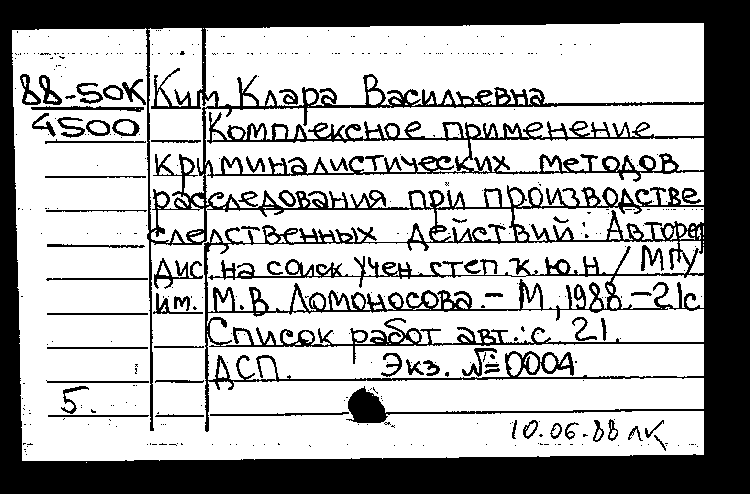 88-50К Ким, Клара Васильевна
4500 Комплексное применение
криминалистических методов
расследования при производстве
следственных действий: Автореф
дис. на соиск. учен. степ. к.ю.н. / МГУ
им. М.В. Ломоносова. - М, 1988. - 21с
Список работ авт.: с 21.
ДСП. Экз. №0004.
5.
10.06.88 лк